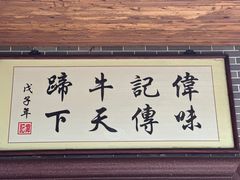 偉記牛蹄
味傳天下
戊子年